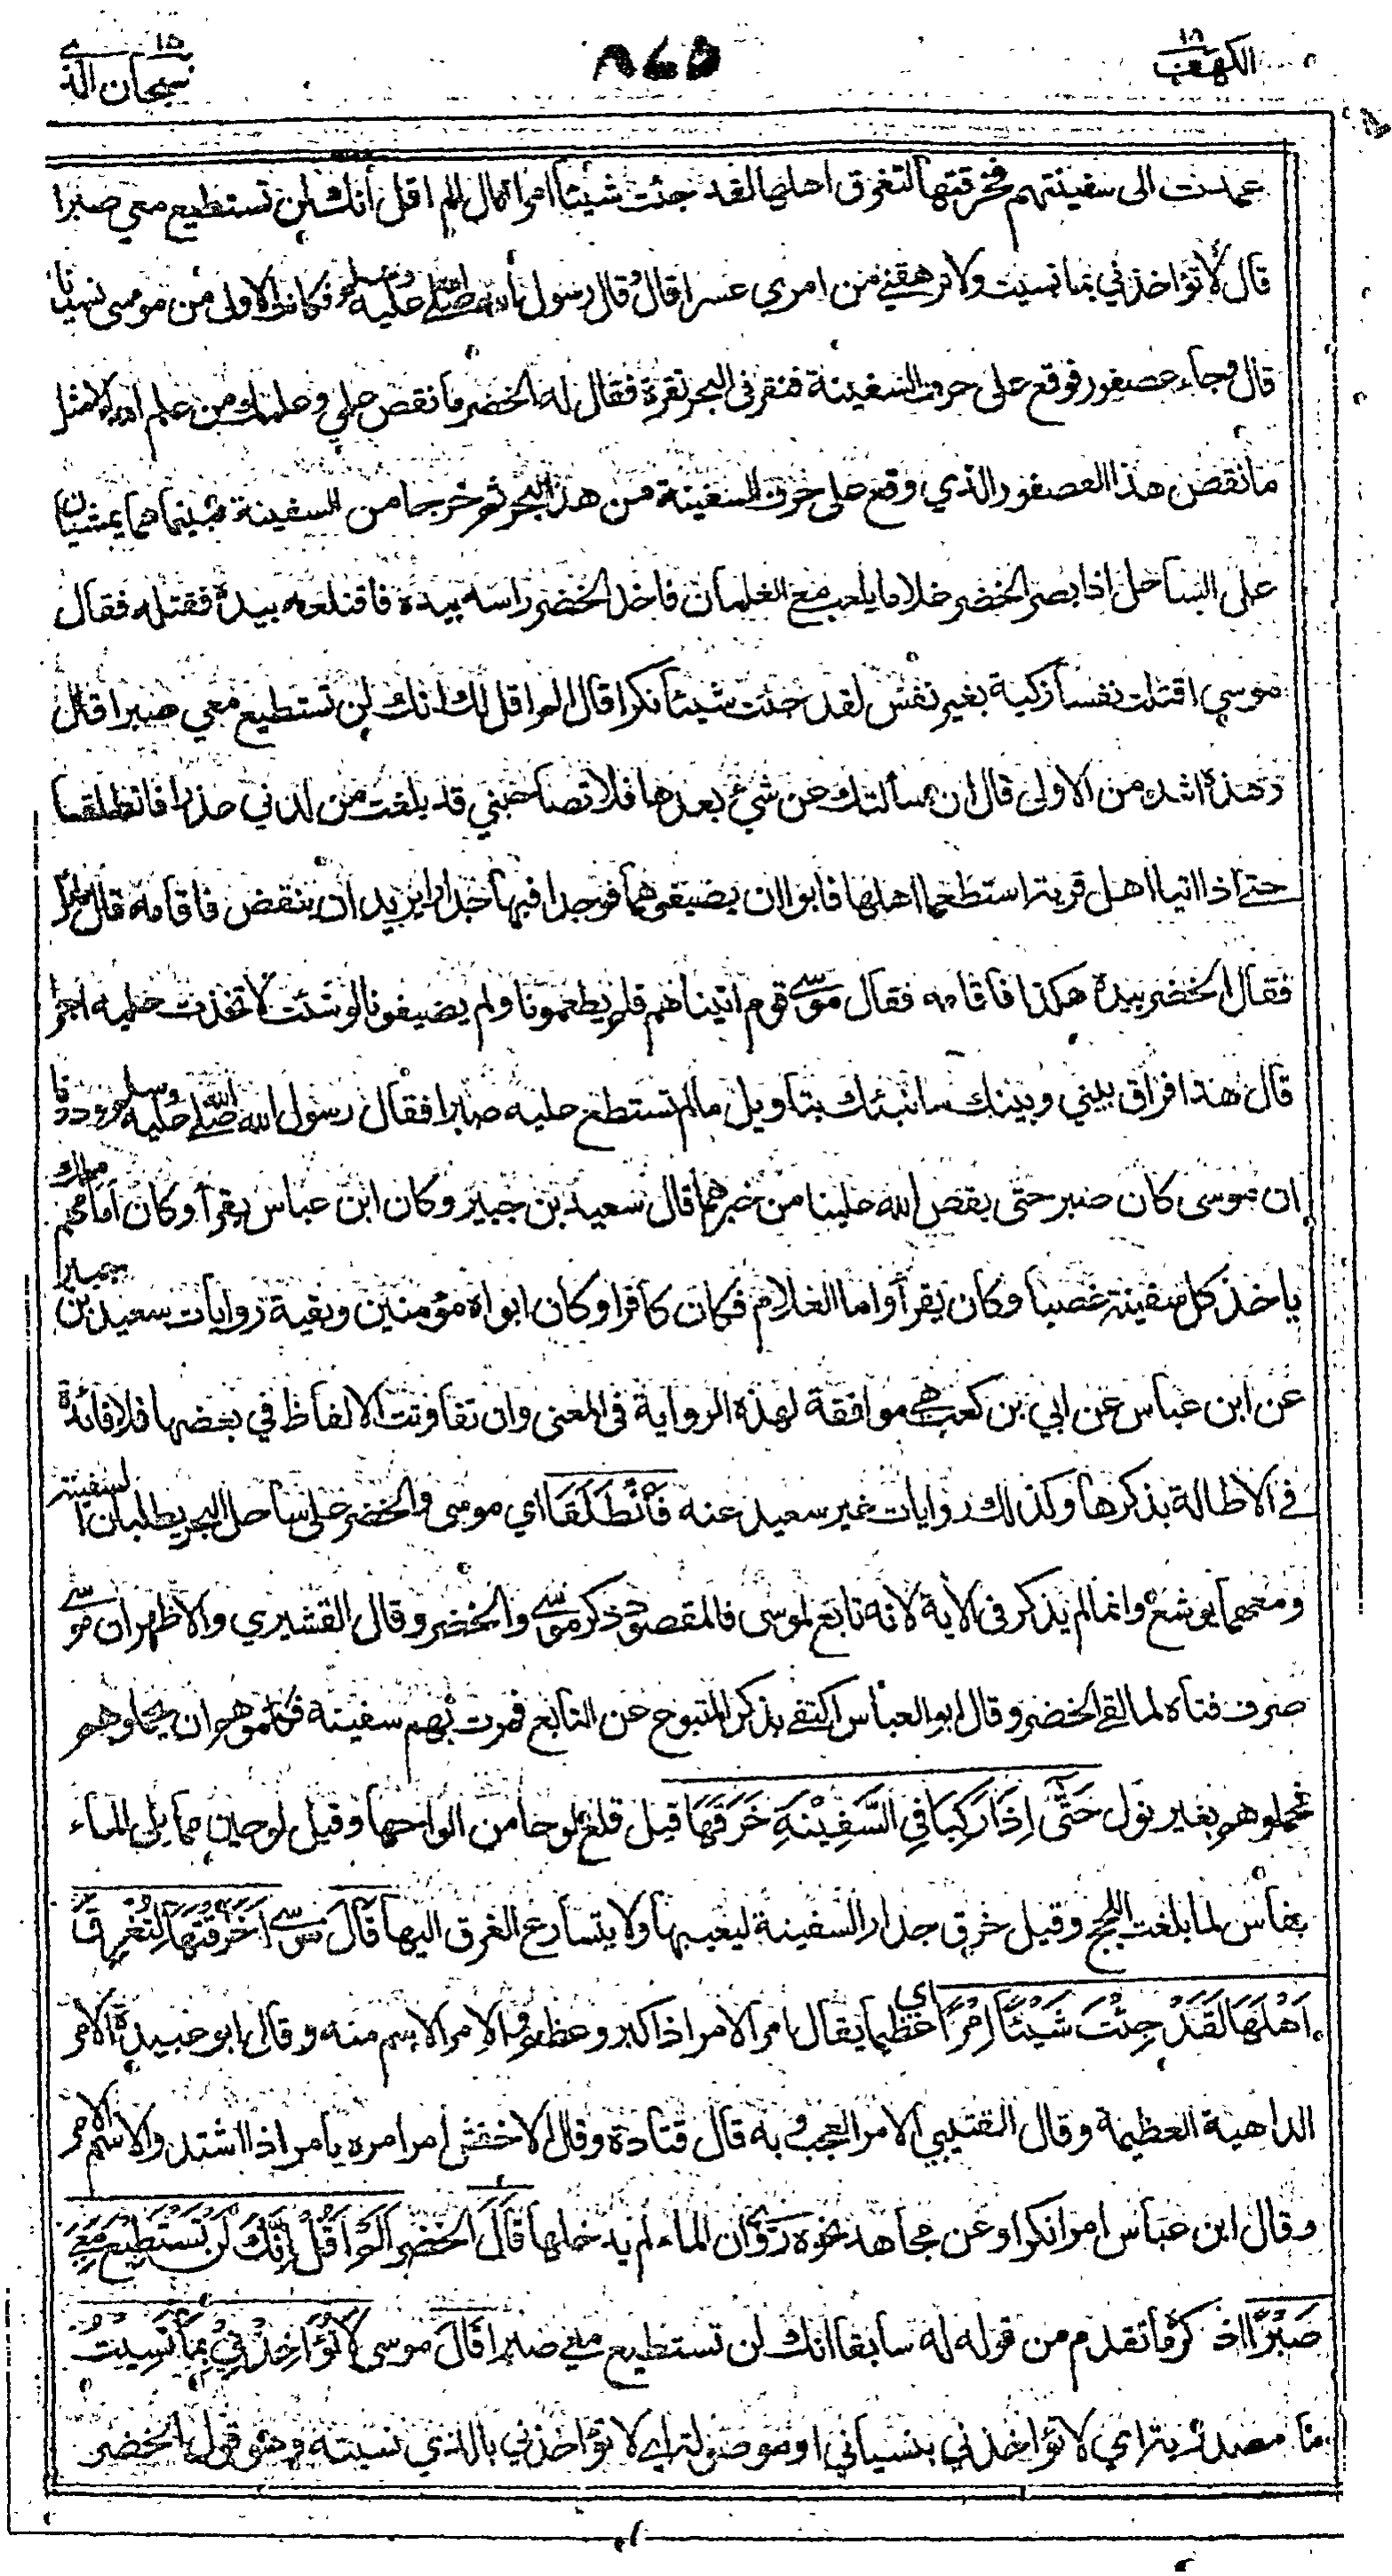 الكهف ١٨
٨٤٥
سبحان الذي ١٥
عمدت الى سفينتهم فخرقتها لتغرق اهلها لقد جئت شيئا امرا قال الم اقل انك لن تستطيع معي صبرا
قال لا تؤاخذني بما نسيت ولا ترهقني من امري عسرا قال وقال رسول الله صلى الله عليه وسلم فكانت الاولى من موسى نسيانا
قال وجاء عصفور فوقع على حرف السفينة فنقر في البحر نقرة فقال له الخضر ما نقص علمي وعلمك من علم الله الا مثل
ما نقص هذا العصفور الذي وقع على حرف السفينة من هذا البحر ثم خرجا من السفينة فبينما هما يمشيان
على الساحل اذا بصر الخضر غلاما يلعب مع الغلمان فاخذ الخضر راسه بيده فاقتلعه بيده فقتله فقال
موسى اقتلت نفسا زكية بغير نفس لقد جئت شيئا نكرا قال الم اقل لك انك لن تستطيع معي صبرا قال
وهذه اشد من الاولى قال ان سألتك عن شيء بعدها فلا تصاحبني قد بلغت من لدني عذرا فانطلقا
حتى اذا اتيا اهل قرية استطعما اهلها فابوا ان يضيفوهما فوجدا فيها جدارا يريد ان ينقض فاقامه قال مائل
فقال الخضر بيده هكذا فاقامه فقال موسى قوم اتيناهم فلم يطعمونا ولم يضيفونا لو شئت لاتخذت عليه اجرا
قال هذا فراق بيني وبينك سانبئك بتاويل ما لم تستطع عليه صبرا فقال رسول الله صلى الله عليه وسلم وددنا
ان موسى كان صبر حتى يقص الله علينا من خبرهما قال سعيد بن جبير وكان ابن عباس يقرأ وكان امامهم ملك
ياخذ كل سفينة غصبا وكان يقرأ واما الغلام فكان كافرا وكان ابواه مؤمنين وبقية روايات سعيد بن جبير
عن ابن عباس عن ابي بن كعب هي موافقة لهذه الرواية في المعنى وان تفاوتت الالفاظ في بعضها فلا فائدة
في الاطالة بذكرها وكذلك روايات غير سعيد عنه فَانْطَلَقَا اي موسى والخضر على ساحل البحر يطلبان السفينة
ومعهما يوشع وانما لم يذكر في الاية لانه تابع لموسى فالمقصود ذكر موسى والخضر وقال القشيري والاظهر ان موسى
صرف فتاه لما لقي الخضر وقال ابو العباس اكتفى بذكر المتبوع عن التابع فمرت بهم سفينة فكلموهم ان يحملوهم
فحملوهم بغير نول حَتَّى اِذَا رَكِبَا فِي السَّفِيْنَةِ خَرَقَهَا قيل قلع لوحا من الواحها وقيل لوحين مما يلي الماء
بفأس لما بلغت اللجج وقيل خرق جدار السفينة ليعيبها ولا يتسارع الغرق اليها قَالَ موسى اَخَرَقْتَهَا لِتُغْرِقَ
اَهْلَهَا لَقَدْ جِئْتَ شَيْئًا اِمْرًا اي عظيما يقال امر الامر اذا كبر وعظم والامر الاسم منه وقال ابو عبيدة الامر
الداهية العظيمة وقال القتيبي الامر العجب وبه قال قتادة وقال الاخفش امر امره يامر اذا اشتد والاسم الامر
وقال ابن عباس امرا نكرا وعن مجاهد نحوه روي ان الماء لم يدخلها قَالَ الخضر اَلَمْ اَقُلْ اِنَّكَ لَنْ تَسْتَطِيْعَ مَعِيَ
صَبْرًا اذ كره ما تقدم من قوله له سابقا انك لن تستطيع معي صبرا قَالَ موسى لَا تُؤَاخِذْنِيْ بِمَا نَسِيْتُ
ما مصدرية اي لا تؤاخذني بنسياني او موصولة اي لا تؤاخذني بالذي نسيته وهو قول الخضر